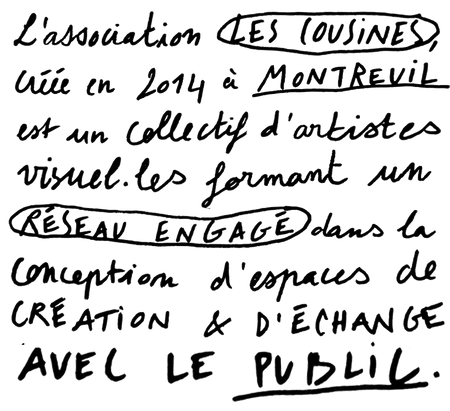 L'association LES COUSINES,
créée en 2014 à MONTREUIL
est un collectif d'artistes
visuel.les formant un
RÉSEAU ENGAGÉ dans la
conception d'espaces de
CRÉATION & D'ÉCHANGE
AVEC LE PUBLIC.